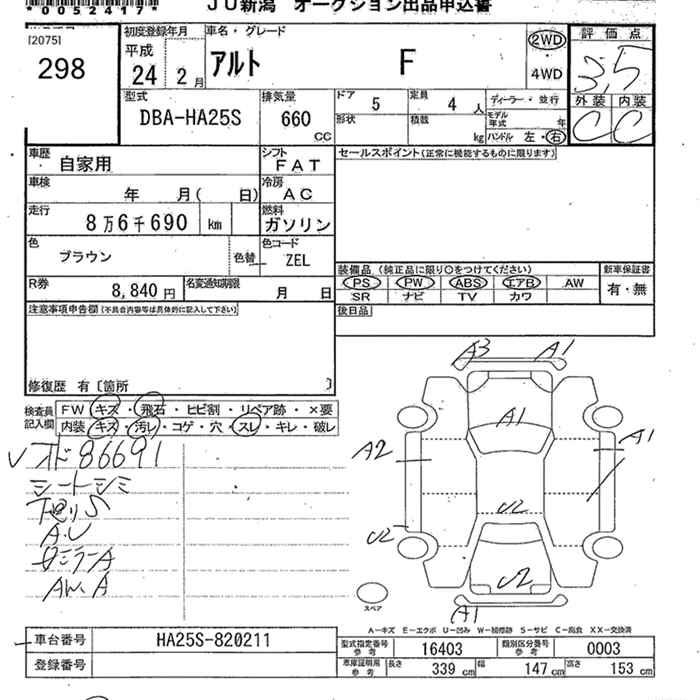 *00524177*
JU新潟 オークション出品申込書
[2075]
298
初度登録年月
平成
24 2 月
車名・グレード
アルト F
2WD
・
4WD
評価点
3,5
外装 内装
C C
型式
DBA-HA25S
排気量
660
CC
ドア 5
定員 4 人
ディーラー・並行
形状
積載 kg
モデル年式 年
ハンドル 左・右
車歴
自家用
シフト
FAT
セールスポイント (正常に機能するものに限ります)
車検
年 月( 日)
冷房
AC
走行
8万6千690 km
燃料
ガソリン
色
ブラウン
色替
色コード
ZEL
装備品 (純正品に限り○をつけてください)
新車保証書
PS PW ABS エアB AW
有・無
SR ナビ TV カワ
R券
8,840 円
名変通知期限
月 日
注意事項申告欄 (不具合内容等は具体的に記入して下さい)
後日品
修復歴 有 [箇所 ]
検査員
記入欄
FW キズ・飛石・ヒビ割・リペア跡・×要
内装 キズ・汚レ・コゲ・穴・スレ・キレ・破レ
86691
シートシミ
下廻りS
A.U
AW.A
A3 A1
A1
A2
A1
U2
U2
U2
A1
スペア
A-キズ E-エクボ U-凹み W-補修跡 S-サビ C-腐食 XX-交換済
車台番号
HA25S-820211
登録番号
型式指定番号
参考
16403
類別区分番号
参考
0003
車庫証明用
参考
長さ 339 cm
幅 147 cm
高さ 153 cm